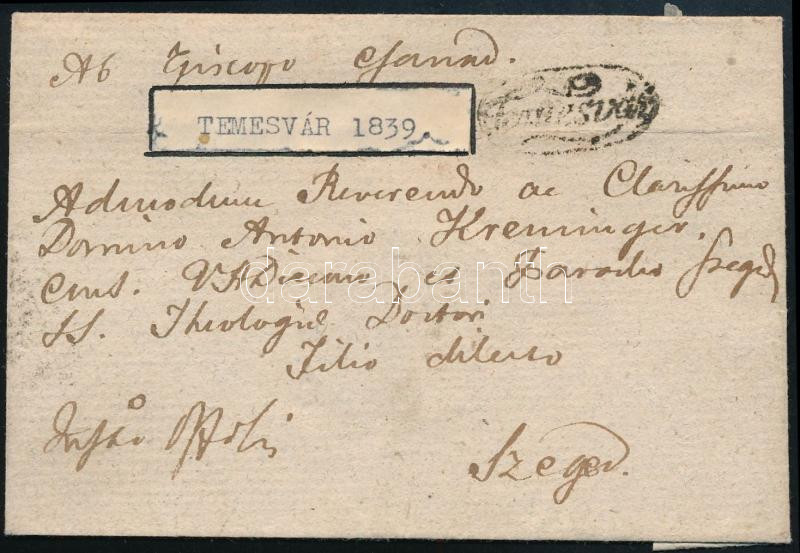 Ab Episcopo Csanad.
TEMESVÁR 1839
Temesvár
Admodum Reverendo ac Clarissimo
Domino Antonio Kreminger,
Cons. VADiacono et Parocho Szeged
SS. Theologiæ Doctori
Filio dilecto
Szeged.
darabanth